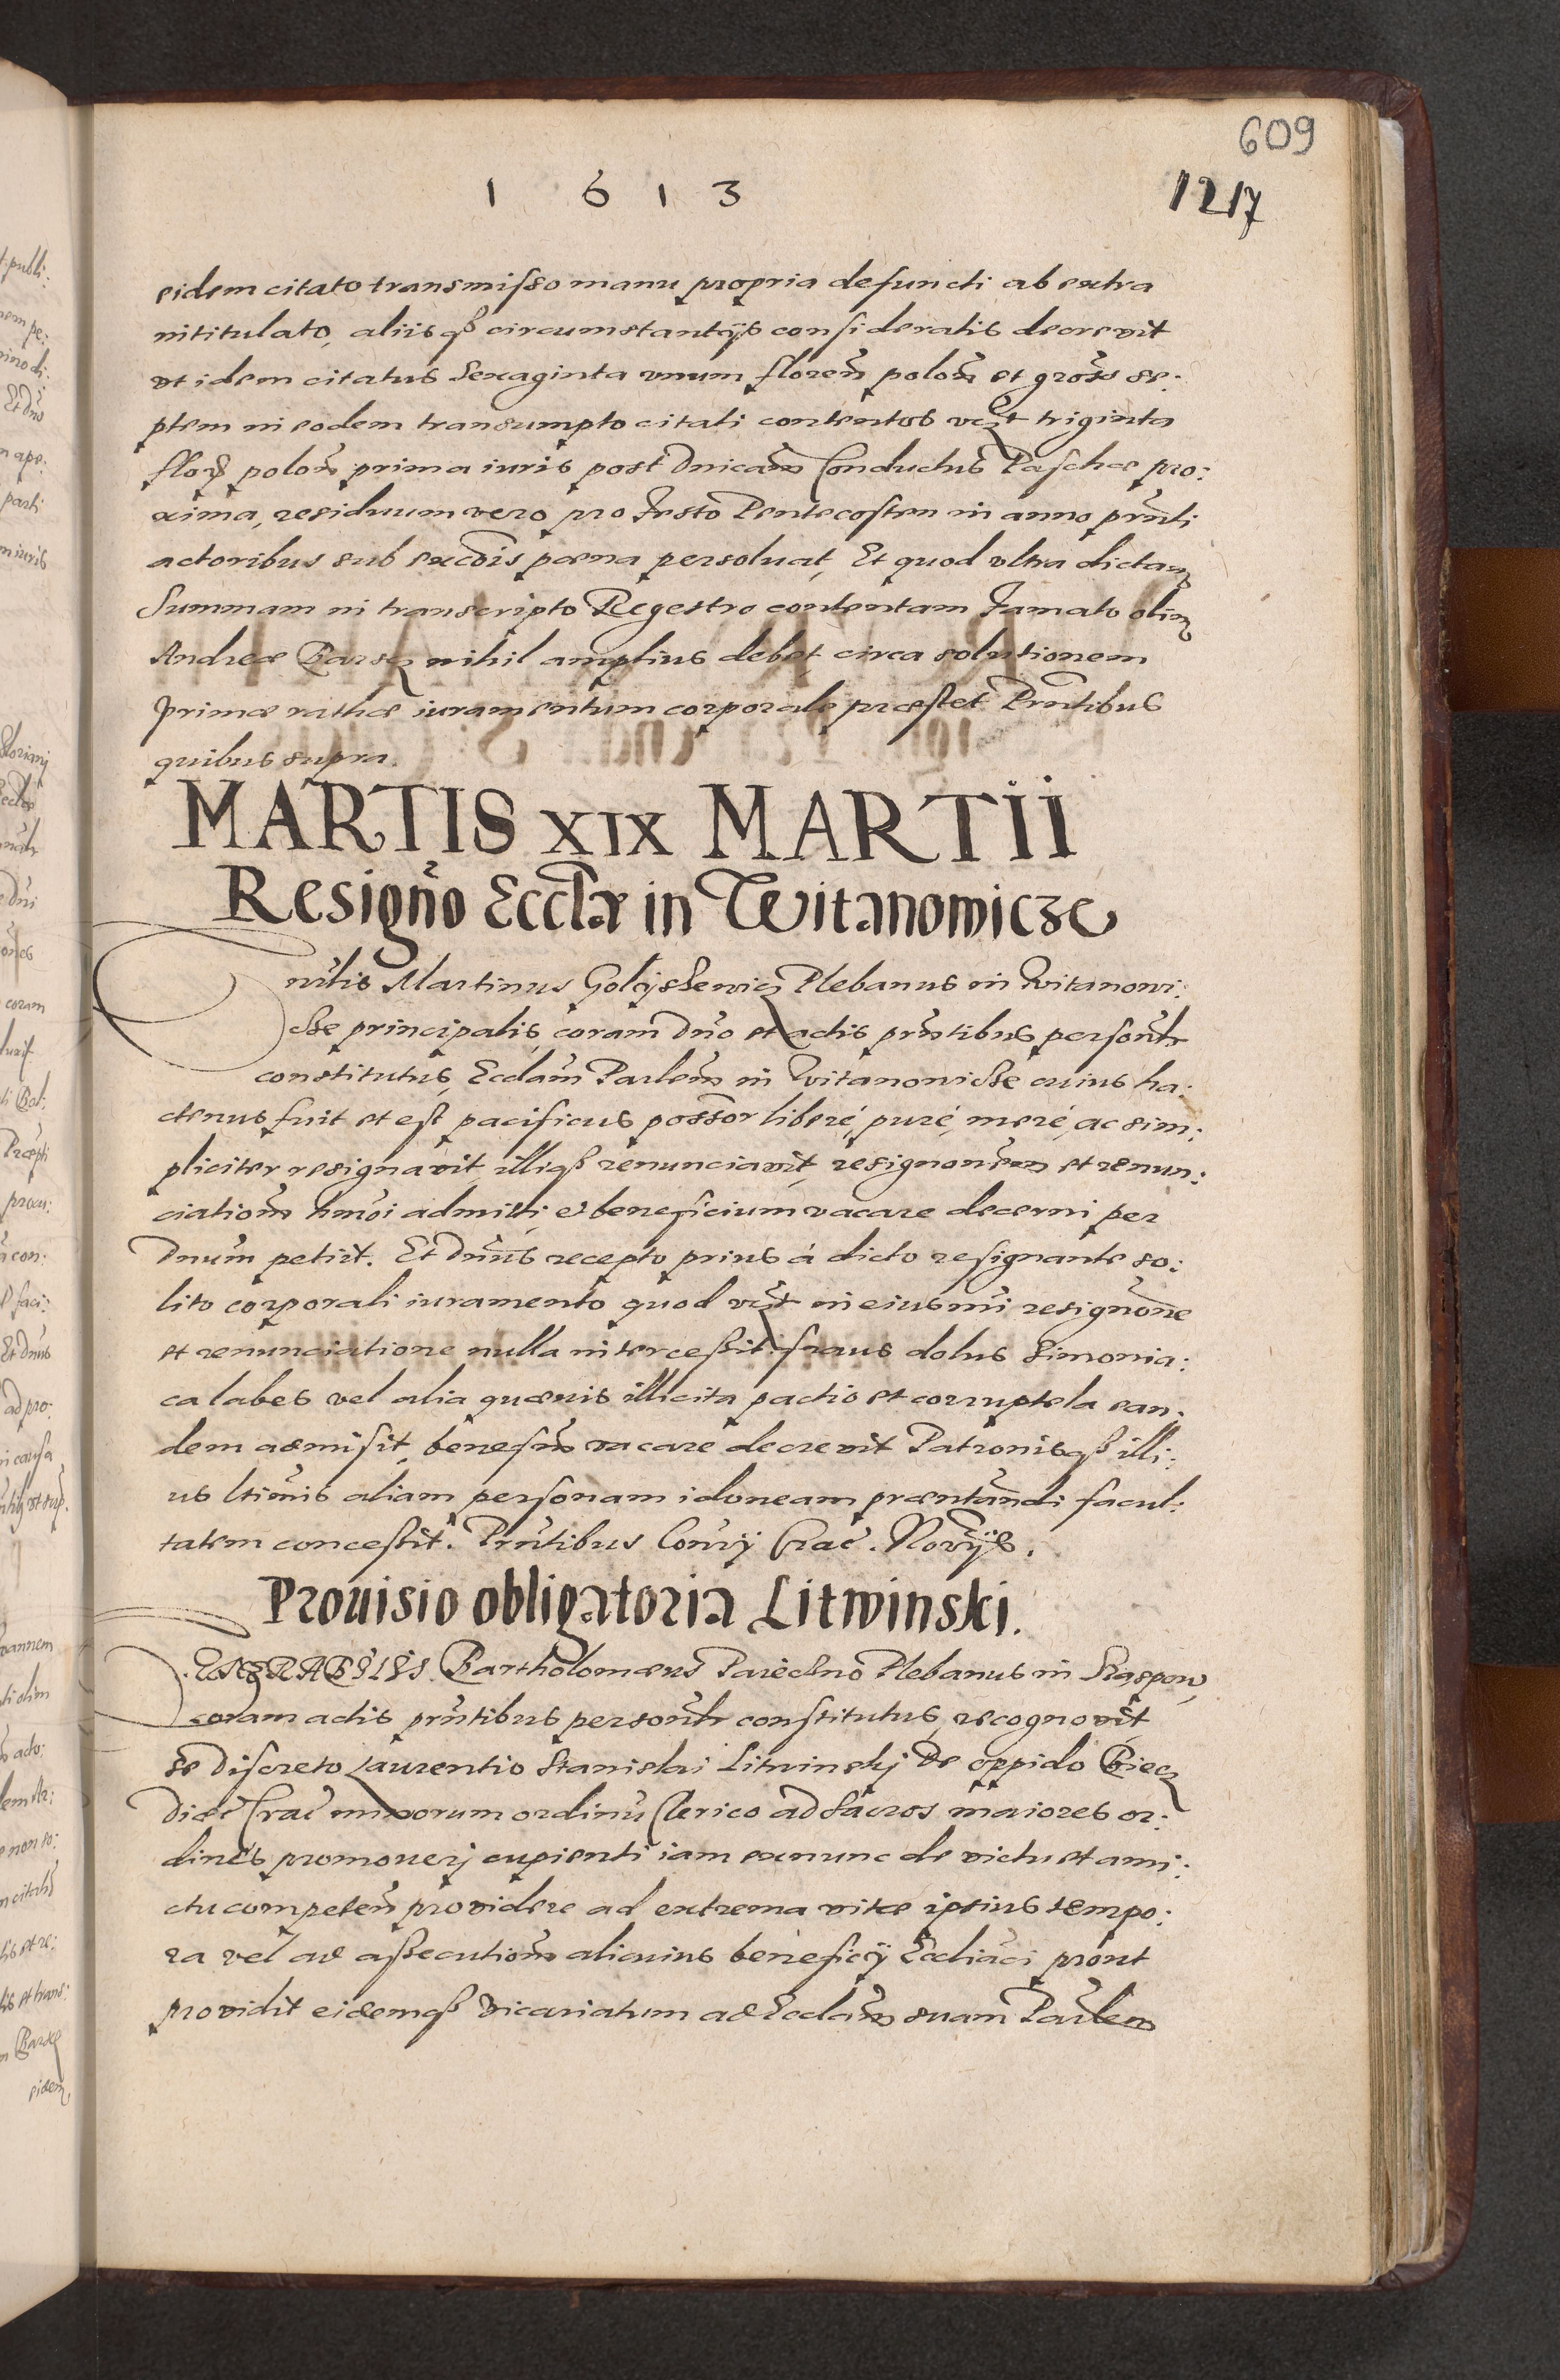 609
1613
1217
eidem citato transmisso manu propria defuncti ab extra
intitulato, aliisq3 circumstantijs consideratis decrevit
ut idem citatus Sexaginta unum floren̄ polon̄ et gross̄ se:
ptem in eodem transumpto citati contentos vcz̄t triginta
flor̄ polon̄ prima iuris post Dnicam̄ Conductus Paschæ pro:
xima, residuum vero pro festo Pentecosten in anno prn̄ti
actoribus sub excōis pœna persoluat, Et quod ultra dictam
Summam in transcripto Regestro contentam famato olim
Andreæ Barscz nihil amplius debet, circa solutionem
primæ rathæ iuramentum corporale præstet Prn̄tibus
quibus supra.
MARTIS XIX MARTII
Resignō Eccl̄æ in Witanowicze
Martinus Plebanus in Witanowi:
cze principalis, coram Dn̄o et actis prn̄tibus personl̄r
constitutus, Eccl̄am Parl̄em in Witanowicze cuius ha:
ctenus fuit et est pacificus possor̄ liberé, puré, meré, ac sim:
pliciter resignavit, illiq3 renunciavit, resignonem̄ et renun:
ciationem̄ hmōi admitti, et beneficium vacare decerni per
Dnum̄ petiit. Et Dnūs recepto prius á dicto resignante so:
lito corporali iuramento quod vcz̄t in eiusmi resignōne
et renunciatione nulla intercessit fraus dolus Simonia:
ca labes vel alia quævis illicita pactio et corruptela ean:
dem admisit, benefm̄ vacare decrevit Patronisq3 illi:
us ltīmis aliam personam idoneam præntāndi facul:
tatem concessit. Prn̄tibus Conv̄ij Crac̄. Nor̄ijs.
Prouisio obligatoria Litwinski.
VENERABILIS Bartholomæus Plebanus in
coram actis prn̄tibus personl̄r constitutus recognovit
se discreto Laurentio Stanislai Litwinskj De oppido Biecz
Diœc̄ Crac̄ minorum ordinū Clerico ad Sacros maiores or:
dines promouerj cupienti iam exnunc de victu et ami:
ctu competen̄ providere ad extrema vitæ ipsius tempo:
ra vel ad assecutionem̄ alicuius beneficij Eccl̄iaci prout
providit eidemq3 Vicariatum ad Eccl̄am suam Parl̄em